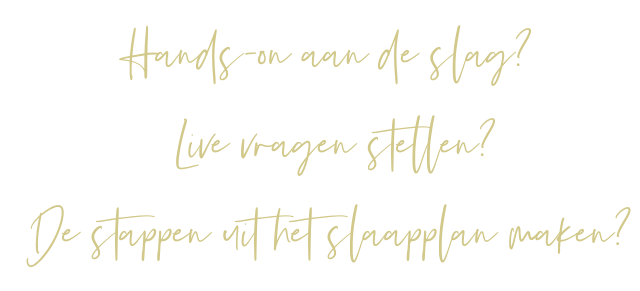 Hands-on aan de slag?
Live vragen stellen?
De stappen uit het slaapplan maken?